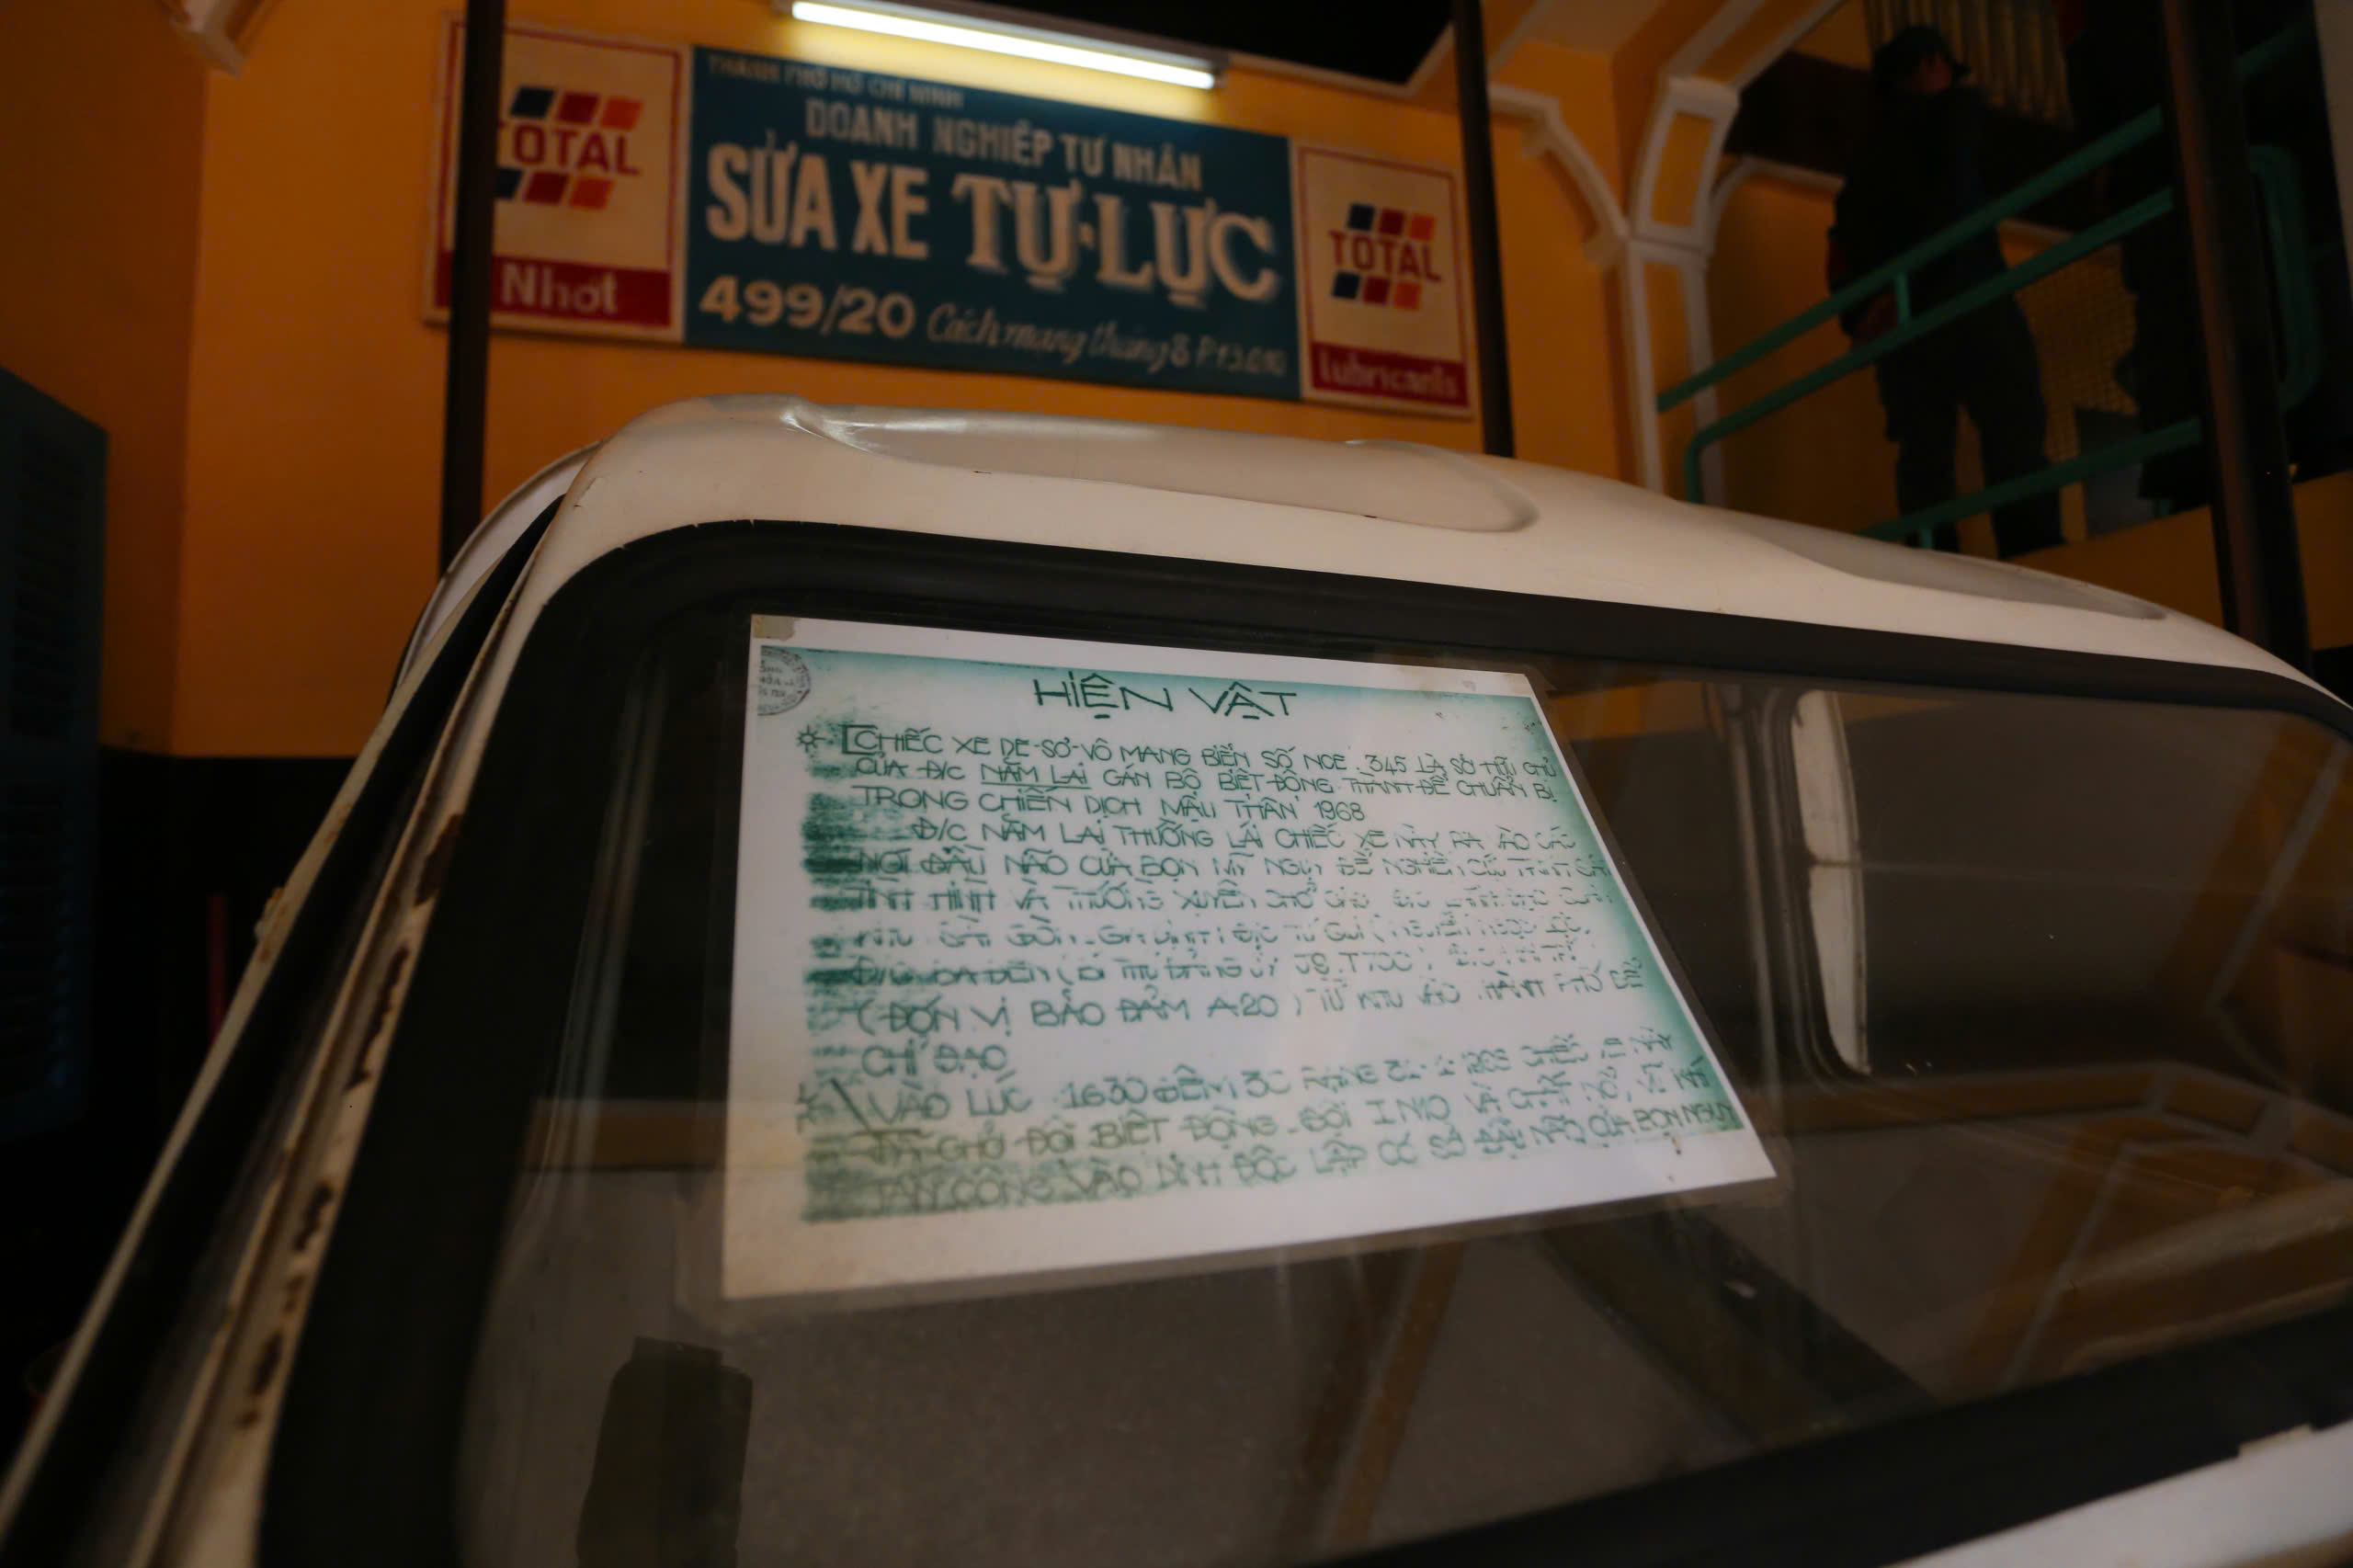 TOTAL
Nhớt
THÀNH PHỐ HỒ CHÍ MINH
DOANH NGHIỆP TƯ NHÂN
SỬA XE TỰ-LỰC
499/20 Cách mạng tháng 8 P13.Q10
TOTAL
lubricants
HIỆN VẬT
CHIẾC XE DE-SƠ-VÔ MANG BIỂN SỐ NCE. 345 LÀ SỞ HỮU CHỦ
CỦA Đ/C NĂM LAI CÁN BỘ BIỆT ĐỘNG THÀNH ĐỂ CHUẨN BỊ
TRONG CHIẾN DỊCH MẬU THÂN 1968
Đ/C NĂM LAI THƯỜNG LÁI CHIẾC XE NÀY RA VÀO CÁC
NƠI ĐẦU NÃO CỦA BỌN MỸ NGỤY ĐỂ NGHIÊN CỨU
TÌNH HÌNH VÀ THƯỜNG XUYÊN CHỞ
KHU SÀI GÒN - GIA ĐỊNH
Đ/C BA ĐEN (BÍ THƯ ĐẢNG ỦY J9.T700)
(ĐƠN VỊ BẢO ĐẢM A20) TỪ KHU VÀO THÀNH PHỐ ĐỂ
CHỈ ĐẠO
VÀO LÚC 1G30 ĐÊM 30 RẠNG
CHỞ ĐỘI BIỆT ĐỘNG ĐỘI VÀ CHẤT NỔ, VŨ KHÍ
TẤN CÔNG VÀO DINH ĐỘC LẬP CƠ SỞ ĐẦU NÃO CỦA BỌN NGỤY